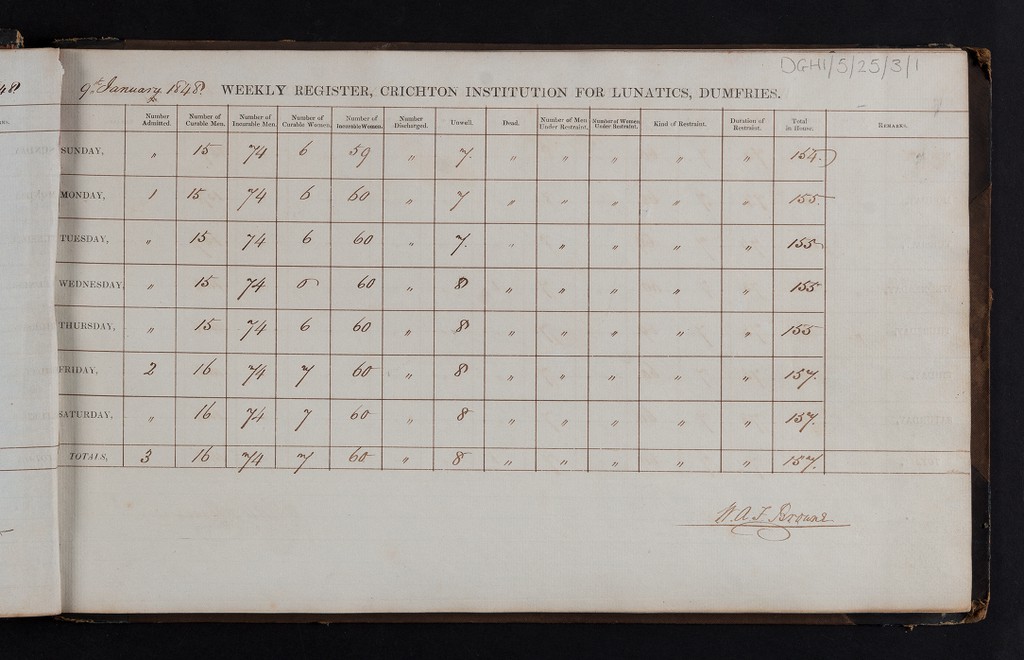 DGH1/5/25/3/1
9th January 1848. WEEKLY REGISTER, CRICHTON INSTITUTION FOR LUNATICS, DUMFRIES.
Number Admitted. Number of Curable Men. Number of Incurable Men. Number of Curable Women. Number of Incurable Women. Number Discharged. Unwell. Dead. Number of Men Under Restraint. Number of Women Under Restraint. Kind of Restraint. Duration of Restraint. Total in House. REMARKS.
SUNDAY, " 15 74 6 59 " 7. " " " " " 154.
MONDAY, 1 15 74 6 60 " 7 " " " " " 155.
TUESDAY, " 15 74 6 60 " 7. " " " " " 155
WEDNESDAY, " 15 74 6 60 " 8 " " " " " 155
THURSDAY, " 15 74 6 60 " 8 " " " " " 155
FRIDAY, 2 16 74 7 60 " 8 " " " " " 157.
SATURDAY, " 16 74 7 60 " 8 " " " " " 157.
TOTALS, 3 16 74 7 60 " 8 " " " " " 157.
W. A. F. Browne